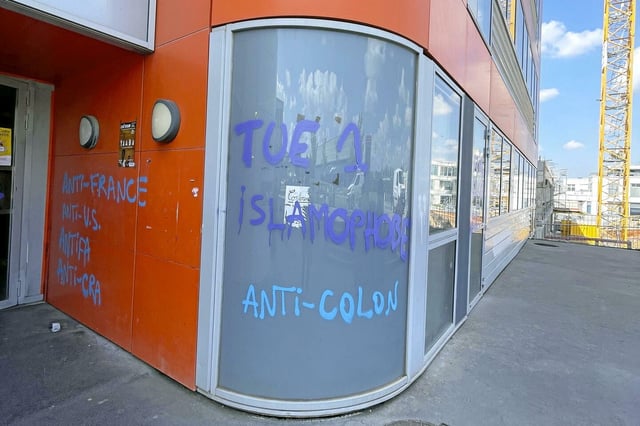 ANTI-FRANCE
ANTI-U.S.
ANTIFA
ANTI-CRA
TUE 1
iSLAMOPHOBE
ANTi-COLON